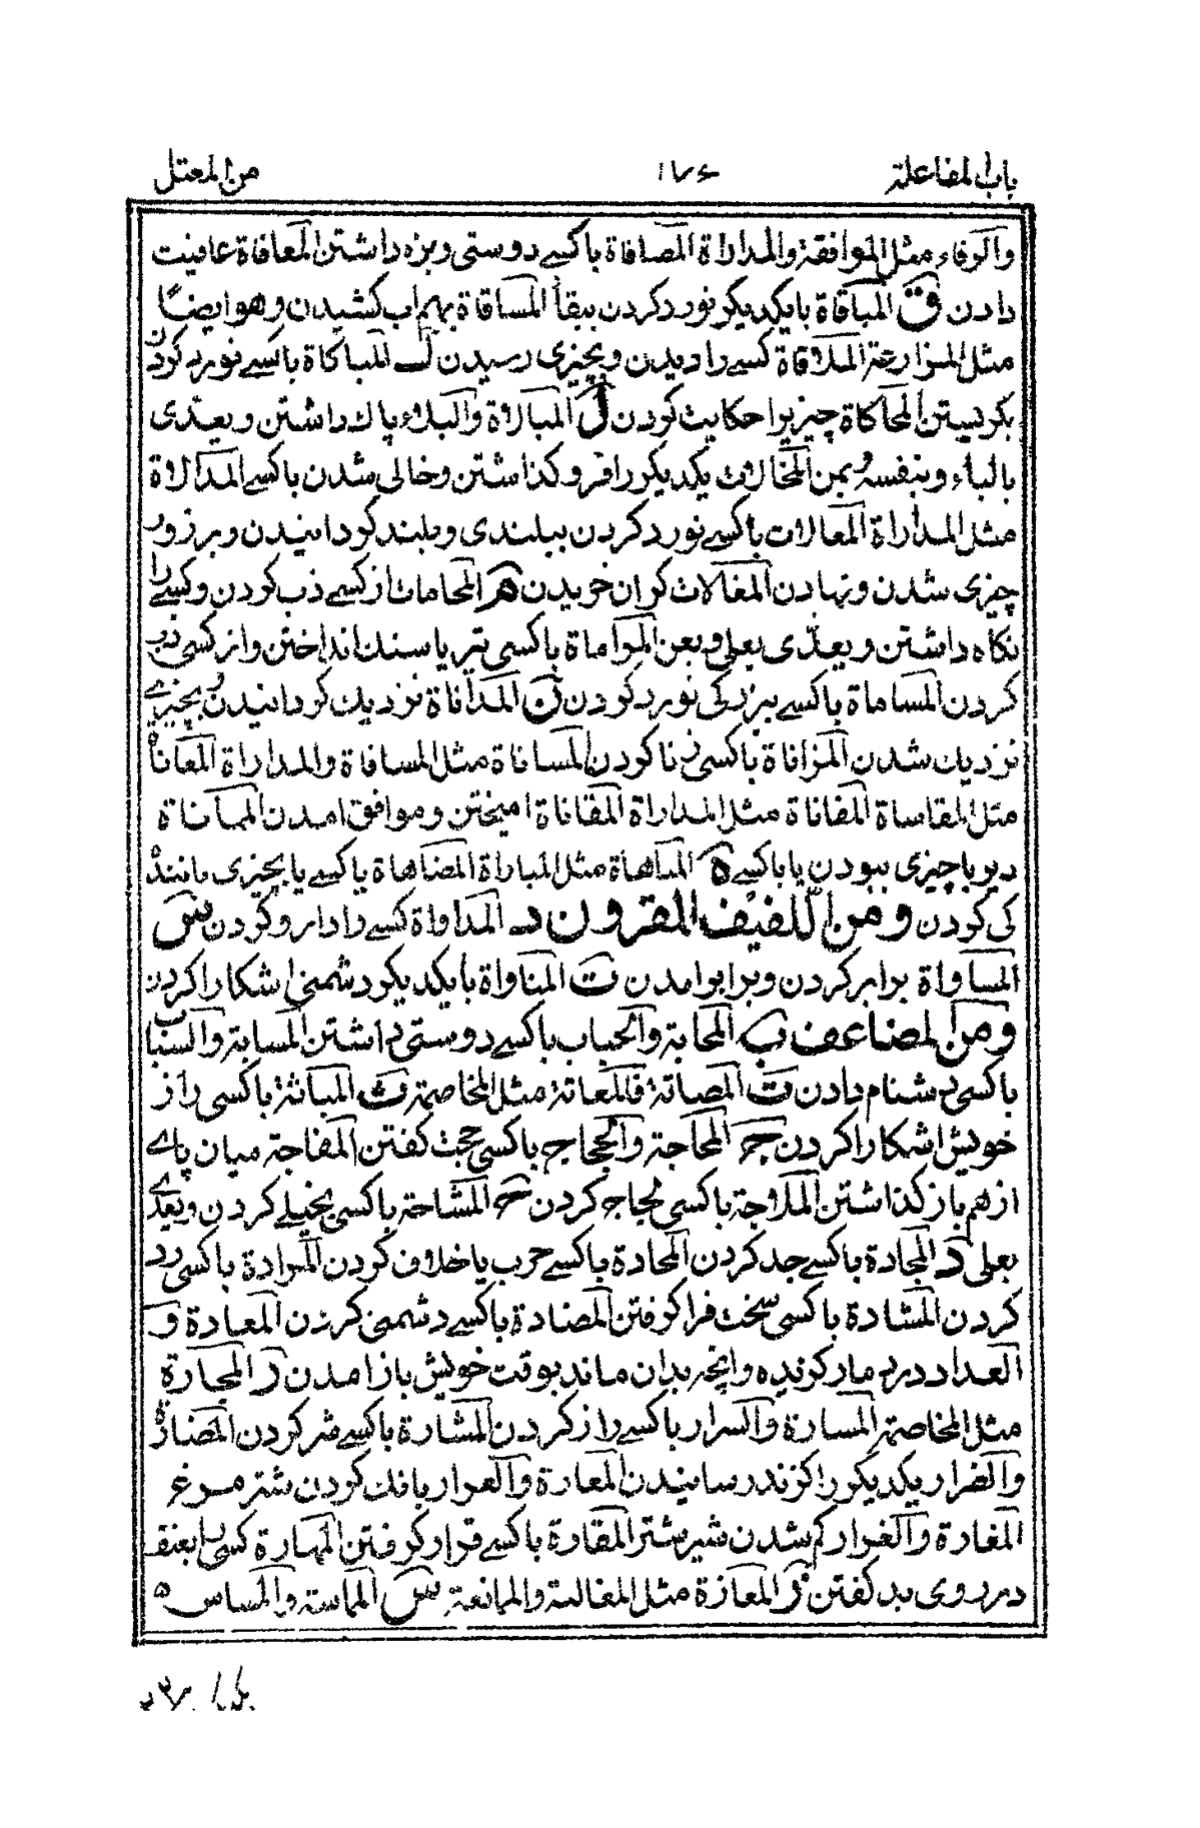 باب المفاعلة ۱۷۶ من المعتل
والوفاء مثل الموافقة والمداراة المصافاة باکسے دوستی ویزه داشتن المعافاة عافیت
دادن ق المباقاة بایکدیکر نورد کردن ببقا المساقاة بهم اب کشیدن وهو ایضًا
مثل المزارعة الملاقاة کسے را دیدن وبچیزی رسیدن ك المباکاة باکسے نورد کردن
بکریستن المحاکاة چیزیرا حکایت کردن ل المبالاة والبلاء پاك داشتن ویعدّی
بالباء وبنفسه وبمن المخالات یکدیکر را فرو کذاشتن وخالی شدن باکسے المدالاة
مثل المداراة المعالات باکسے نورد کردن ببلندی وبلند کردانیدن وبرزور
چیزی شدن ونهادن المغالات کران خریدن م المحامات از کسے ذب کردن وکسے را
نکاه داشتن ویعدّی بعلی وبعن المراماة باکسی تیر یا سنك انداختن واز کسی ذب
کردن المساماة باکسے ببزرکی نورد کردن ن المداناة نزدیك کردانیدن وبچیزے
نزدیك شدن المزاناة باکسی زنا کردن المساناة مثل المسافاة والمداراة المعاناة
مثل المقاساة المفاناة مثل المداراة المقاناة امیختن وموافق امدن المماناة
دیر با چیزی ببودن یا باکسے ه المباهاة مثل المباراة المضاهاة باکسے یا بچیزی مانند
کی کردن ومن اللفیف المقرون د المداواة کسے را دارو کردن س
المساواة برابر کردن وبرابر امدن ت المناواة بایکدیکر دشمنی اشکارا کردن
ومن المضاعف ب المحابة والحباب باکسے دوستی داشتن المسابة والسباب
باکسی دشنام دادن ت المصاتة فالمعاتة مثل المخاصمة ث المباثة باکسی راز
خویش اشکارا کردن ج المحاجة والحجاج باکسی حجت کفتن المفاجة میان پاے
از هم باز کذاشتن الملاجة باکسی لجاج کردن ح المشاحة باکسی بخیلے کردن ویعدی
بعلی د المجادة باکسے جد کردن المحادة باکسے حرب یا خلاف کردن المرادة باکسی رد
کردن المشادة باکسی سخت فرا کرفتن المضادة باکسے دشمنی کردن المعادة و
العداد درد مار کزیده وانچه بدان ماند بوقت خویش باز امدن ر المجارة
مثل المخاصمة المسارة والسرار باکسے راز کردن المشارة باکسے شر کردن المضارة
والضرار یکدیکر را کزند رسانیدن المعارة والعرار بانك کردن شتر مرغ
المغارة والغرار کم شدن شیر شتر المقارة باکسے قرار کرفتن المهارة کسی را بعنف
در روی بد کفتن ز المعازة مثل المغالبة والممانعة س المماسة والمساس